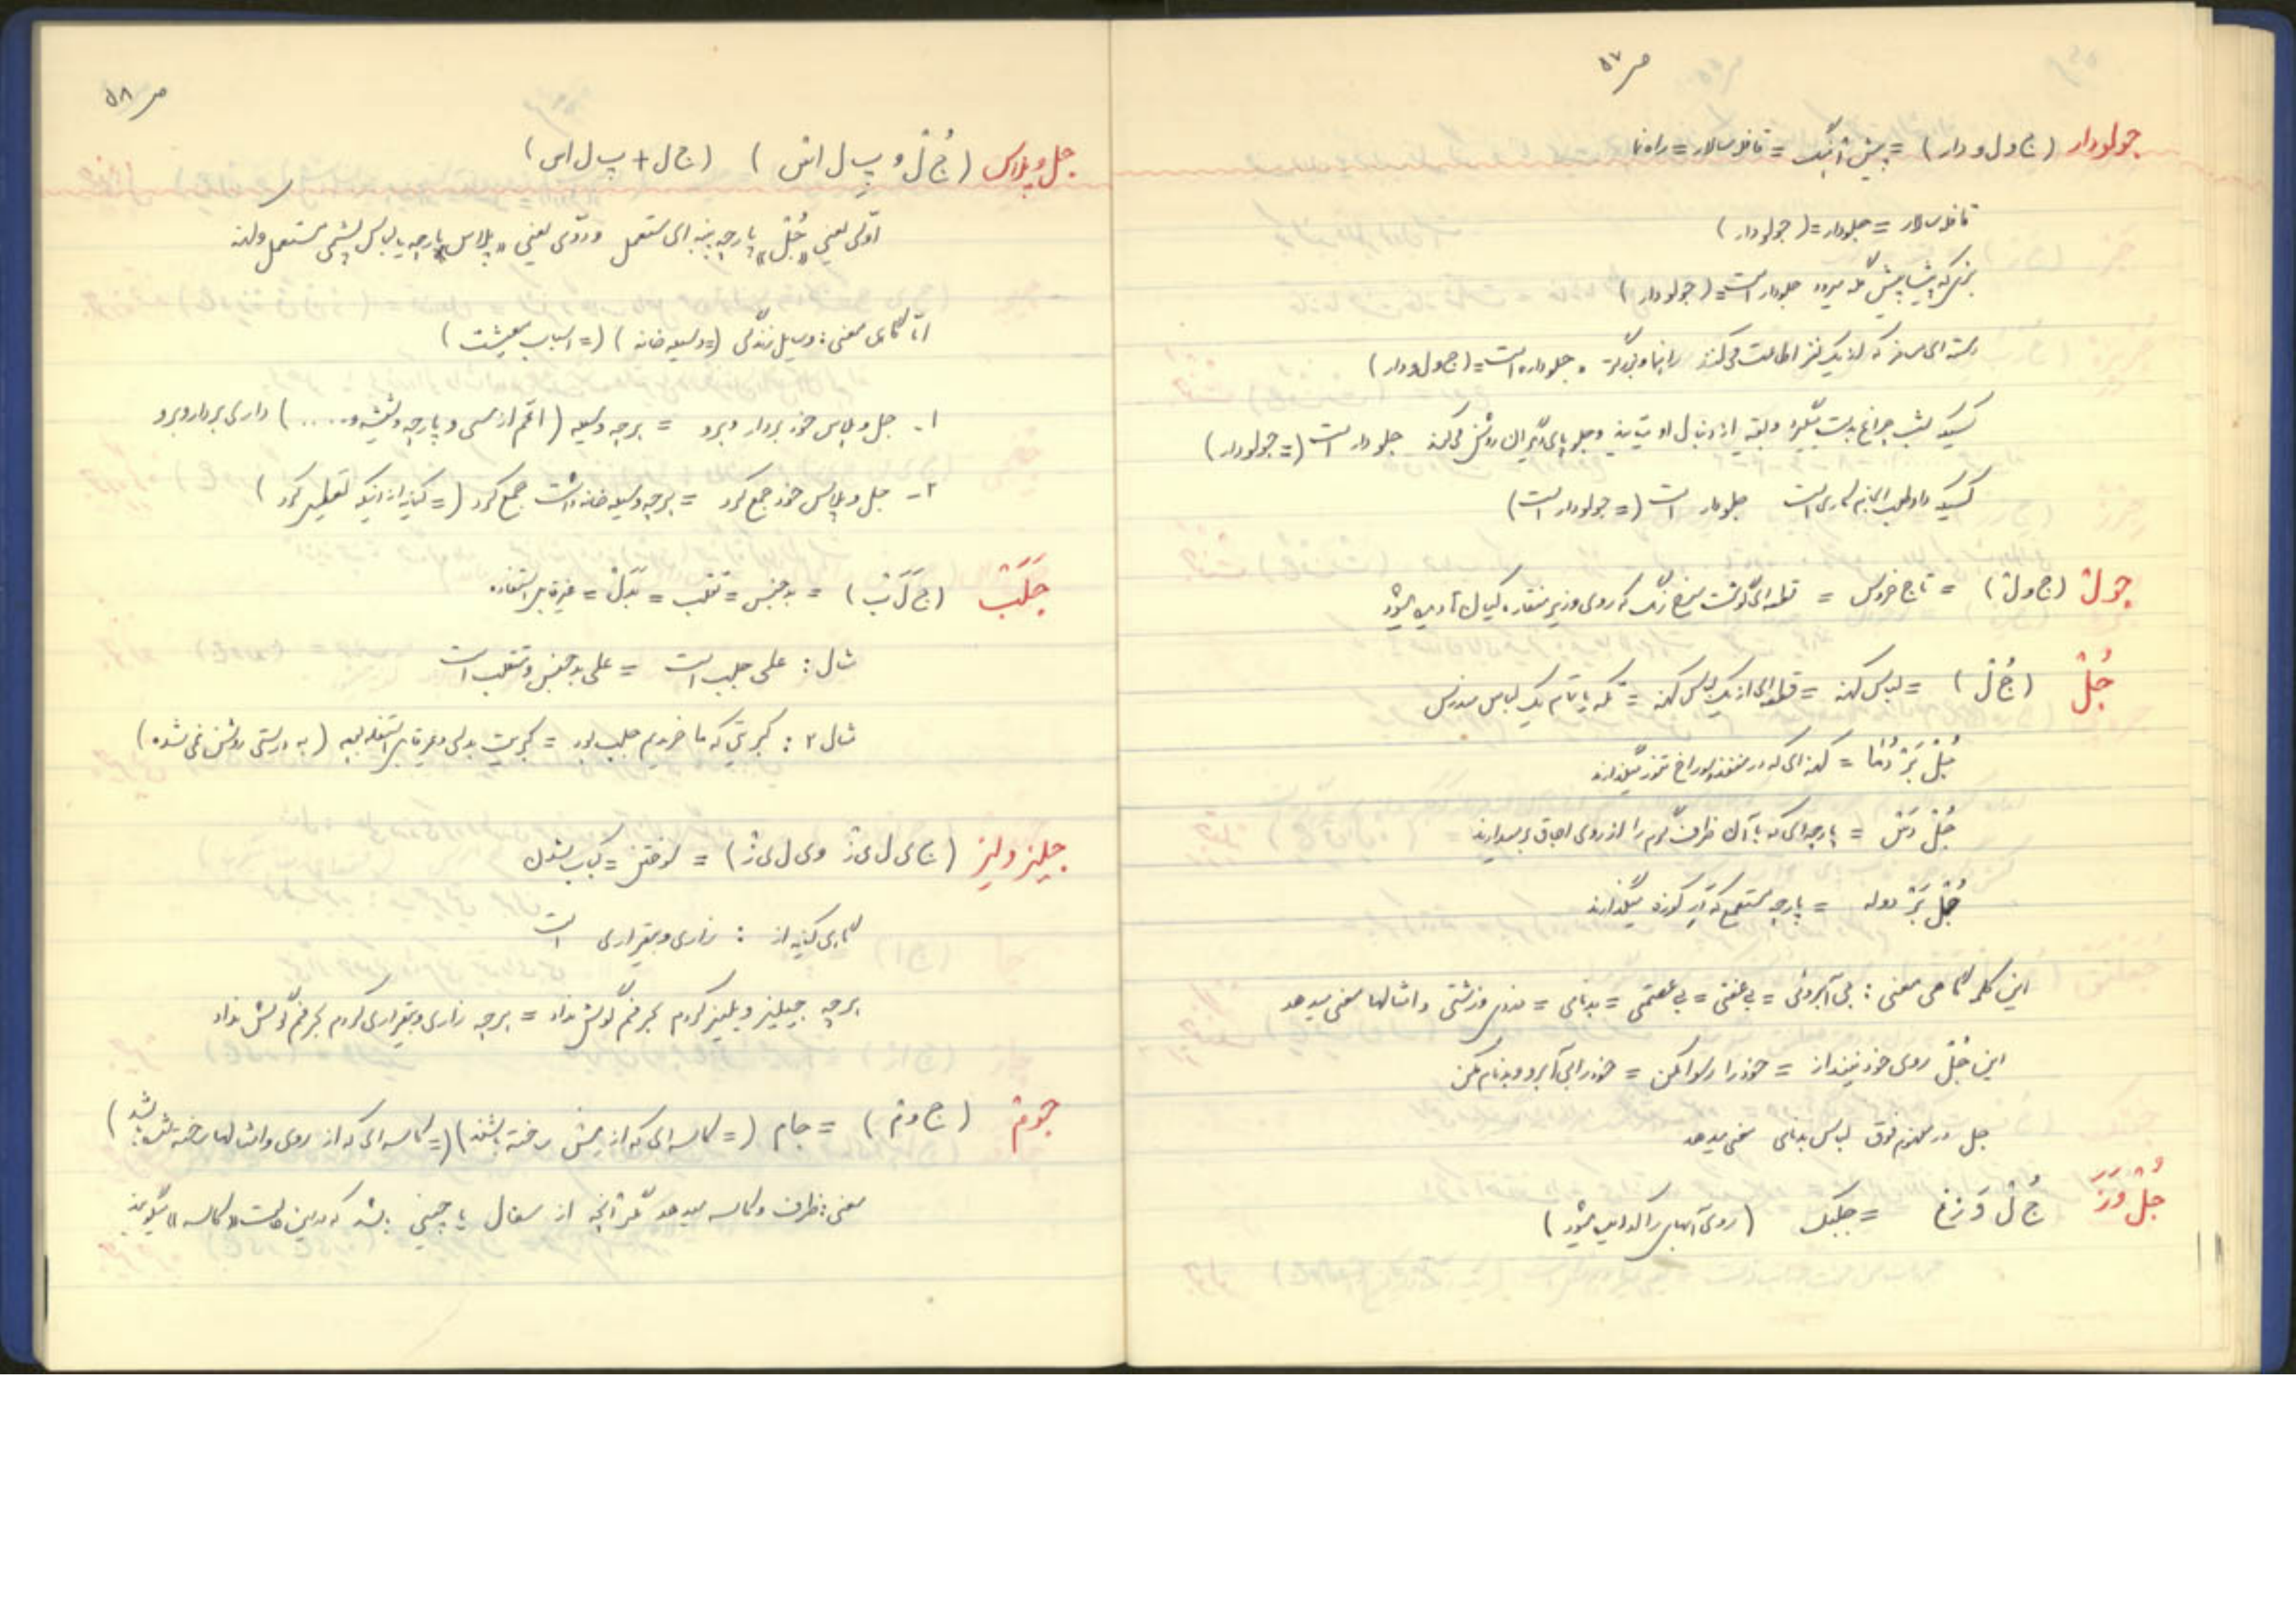 ص ۵۷
جولودار (ج و ل و دار) = پیش آهنگ = قافله سالار = راه نما
قافله سالار = جلودار = (جولودار)
بزی که پیشاپیش گله میرود جلودار است = (جولودار)
دسته ای مسافر که از یک نفر اطاعت می کنند راهنما و بزرگتر، جلودار است = (ج و ل و دار)
کسیکه شب چراغ بدست میگیرد و بقیه از دنبال او میآیند و جلو پای دیگران روشن می کند جلودار است (= جولودار)
کسیکه داوطلب انجام کاری است جلودار است (= جولودار است)
جول (ج و ل) = تاج خروس = قطعه ای گوشت سرخ رنگ که روی و زیر منقار ماکیان دیده میشود
جُل (جُ ل) = لباس کهنه = قطعه ای از یک لباس کهنه = تکه یا تمام یک لباس مندرس
جُلْ بَرْ = کهنه ای که در منفذ و سوراخ تنور میگذارند
جُلْ دَس = پارچه ای که با آن ظرف گرم را از روی اجاق بر میدارند
جُلْ بَرْ دوله = پارچه که در کوزه میگذارند
این کلمه گاهی معنی: بی آبروئی = بی عفتی = بی عصمتی = بدنامی = و زشتی و امثالها معنی میدهد
این جُل روی خود نینداز = خود را رسوا مکن = خود را بی آبرو و بدنام مکن
جل در مفهوم فوق لباس بدنامی معنی میدهد
جُلْ وَزَ جُ ل وَ زَغ = جلبک (روی آبهای راکد دیده میشود)
ص ۵۸
جل و پلاس (جُ ل و پ ل اس) (ج ل + پ ل اس)
اولی یعنی «جُل» پارچه پنبه ای مستعمل و دومی یعنی «پلاس» پارچه یا لباس پشمی مستعمل و کهنه
اما گاهی معنی: وسایل زندگی (= وسیله خانه) (= اسباب معیشت)
۱- جل و پلاس خود بردار و برو = هر چه وسیله (اعم از مسی و پارچه و شیشه و .....) داری بردار و برو
۲- جل و پلاس خود جمع کرد = هر چه وسیله خانه داشت جمع کرد (= کنایه از اینکه تعطیل کرد)
جَلَب (ج لَ ب) = بد جنس = تقلب = بَدَل = غیر قابل استفاده
مثال: علی جلب است = علی بد جنس و متقلب است
مثال ۲: کبریتی که ما خریدیم جلب بود = کبریت بدلی و غیر قابل استفاده بود (به درستی روشن نمی شد)
جلیز ولیز (ج ی ل ی ز و ی ل ی ز) = سوختن = کباب شدن
گاهی کنایه از: زاری و بیقراری است
هر چه جیلیز و ویلیز کردم بحرفم گوش نداد = هر چه زاری و بیقراری کردم بحرفم گوش نداد
جوم (ج و م) = جام (= کاسه ای که از مس ساخته باشند) (= کاسه ای که از روی و امثالها ساخته شده باشد)
معنی: ظرف و کاسه میدهد مگر آنچه از سفال یا چینی باشد که در این حالت «کاسه» میگویند